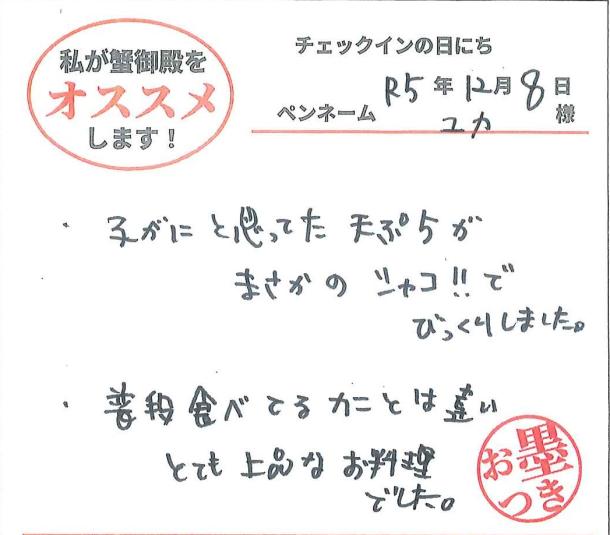 私が蟹御殿を
オススメ
します！
チェックインの日にち
R5年12月8日
ペンネーム ユカ 様
・子がにと思ってた天ぷらが
まさかのシャコ!!で
びっくりしました。
・普段食べてるカニとは違い
とても上品なお料理
でした。
お墨
つき